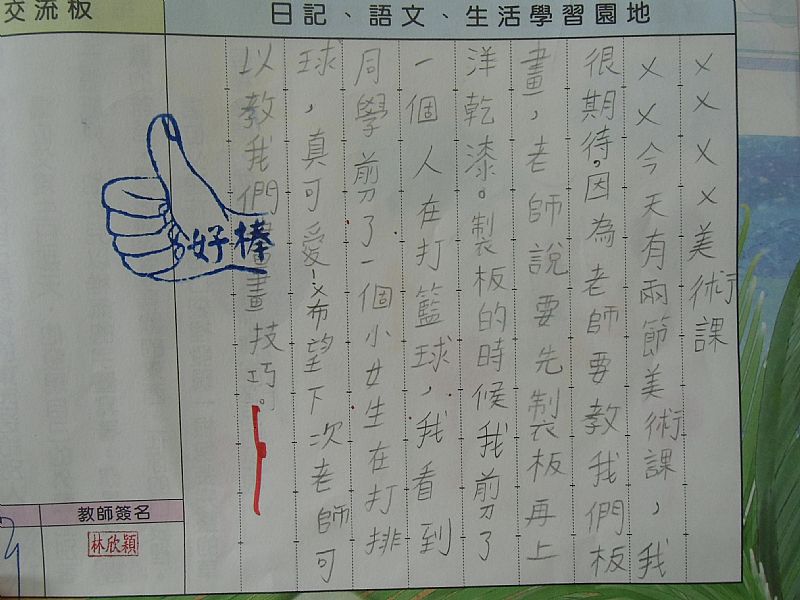 交流板
日記、語文、生活學習園地
××××美術課
××今天有兩節美術課，我
很期待。因為老師要教我們板
畫，老師說要先製板再上
洋乾漆。製板的時候我剪了
一個人在打籃球，我看到
同學剪了一個小女生在打排
球，真可愛！希望下次老師可
以教我們畫畫技巧。
好棒
教師簽名
林欣穎